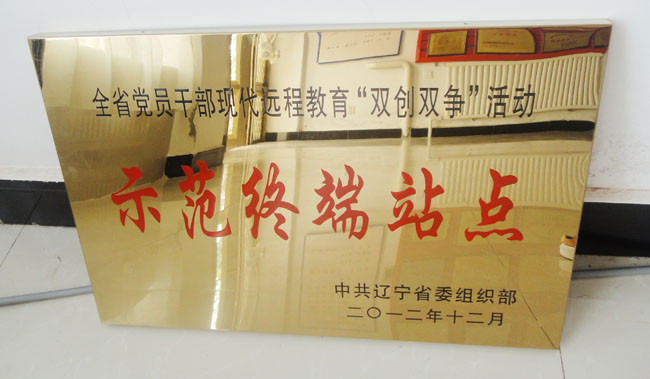 全省党员干部现代远程教育“双创双争”活动
示范终端站点
中共辽宁省委组织部
二〇一二年十二月